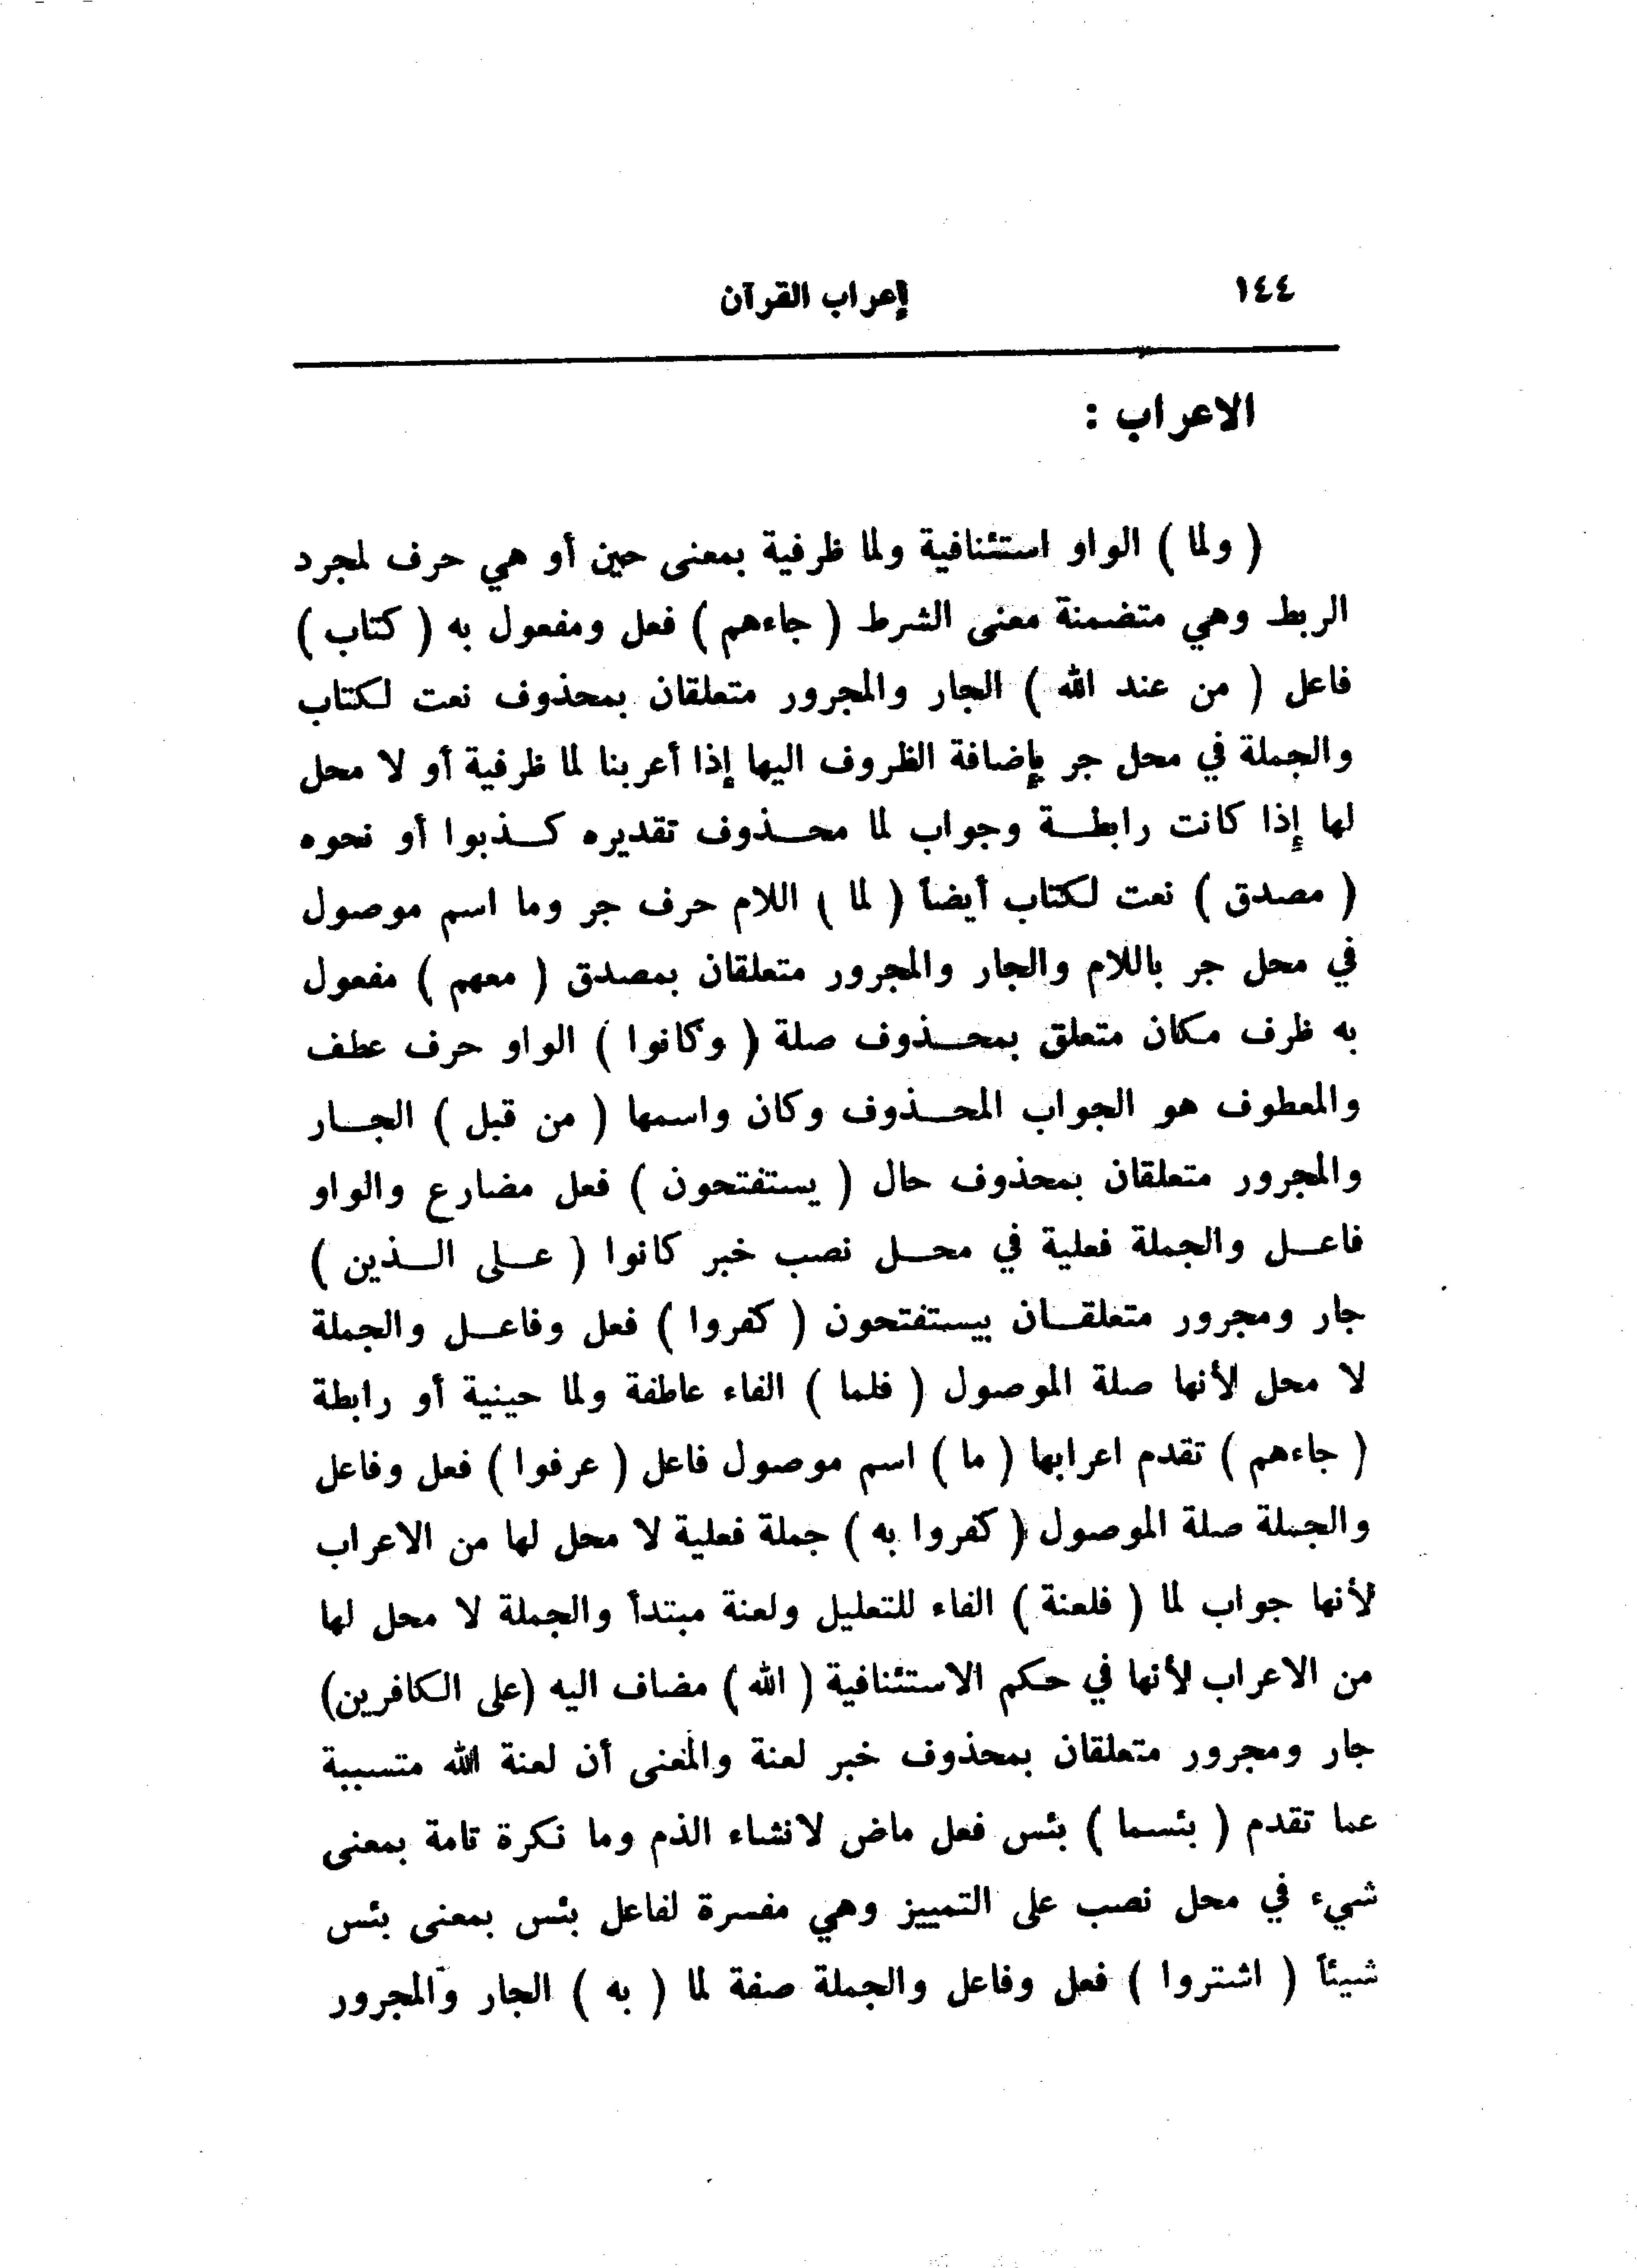 ١٤٤
إعراب القرآن
الاعراب :
( ولما ) الواو استئنافية ولما ظرفية بمعنى حين أو هي حرف لمجرد
الربط وهي متضمنة معنى الشرط ( جاءهم ) فعل ومفعول به ( كتاب )
فاعل ( من عند الله ) الجار والمجرور متعلقان بمحذوف نعت لكتاب
والجملة في محل جر بإضافة الظروف اليها إذا أعربنا لما ظرفية أو لا محل
لها إذا كانت رابطة وجواب لما محذوف تقديره كذبوا أو نحوه
( مصدق ) نعت لكتاب أيضاً ( لما ) اللام حرف جر وما اسم موصول
في محل جر باللام والجار والمجرور متعلقان بمصدق ( معهم ) مفعول
به ظرف مكان متعلق بمحذوف صلة ( وكانوا ) الواو حرف عطف
والمعطوف هو الجواب المحذوف وكان واسمها ( من قبل ) الجار
والمجرور متعلقان بمحذوف حال ( يستفتحون ) فعل مضارع والواو
فاعل والجملة فعلية في محل نصب خبر كانوا ( على الذين )
جار ومجرور متعلقان بيستفتحون ( كفروا ) فعل وفاعل والجملة
لا محل لأنها صلة الموصول ( فلما ) الفاء عاطفة ولما حينية أو رابطة
( جاءهم ) تقدم اعرابها ( ما ) اسم موصول فاعل ( عرفوا ) فعل وفاعل
والجملة صلة الموصول ( كفروا به ) جملة فعلية لا محل لها من الاعراب
لأنها جواب لما ( فلعنة ) الفاء للتعليل ولعنة مبتدأ والجملة لا محل لها
من الاعراب لأنها في حكم الاستئنافية ( الله ) مضاف اليه (على الكافرين)
جار ومجرور متعلقان بمحذوف خبر لعنة والمعنى أن لعنة الله متسببة
عما تقدم ( بئسما ) بئس فعل ماض لانشاء الذم وما نكرة تامة بمعنى
شيء في محل نصب على التمييز وهي مفسرة لفاعل بئس بمعنى بئس
شيئاً ( اشتروا ) فعل وفاعل والجملة صفة لما ( به ) الجار والمجرور